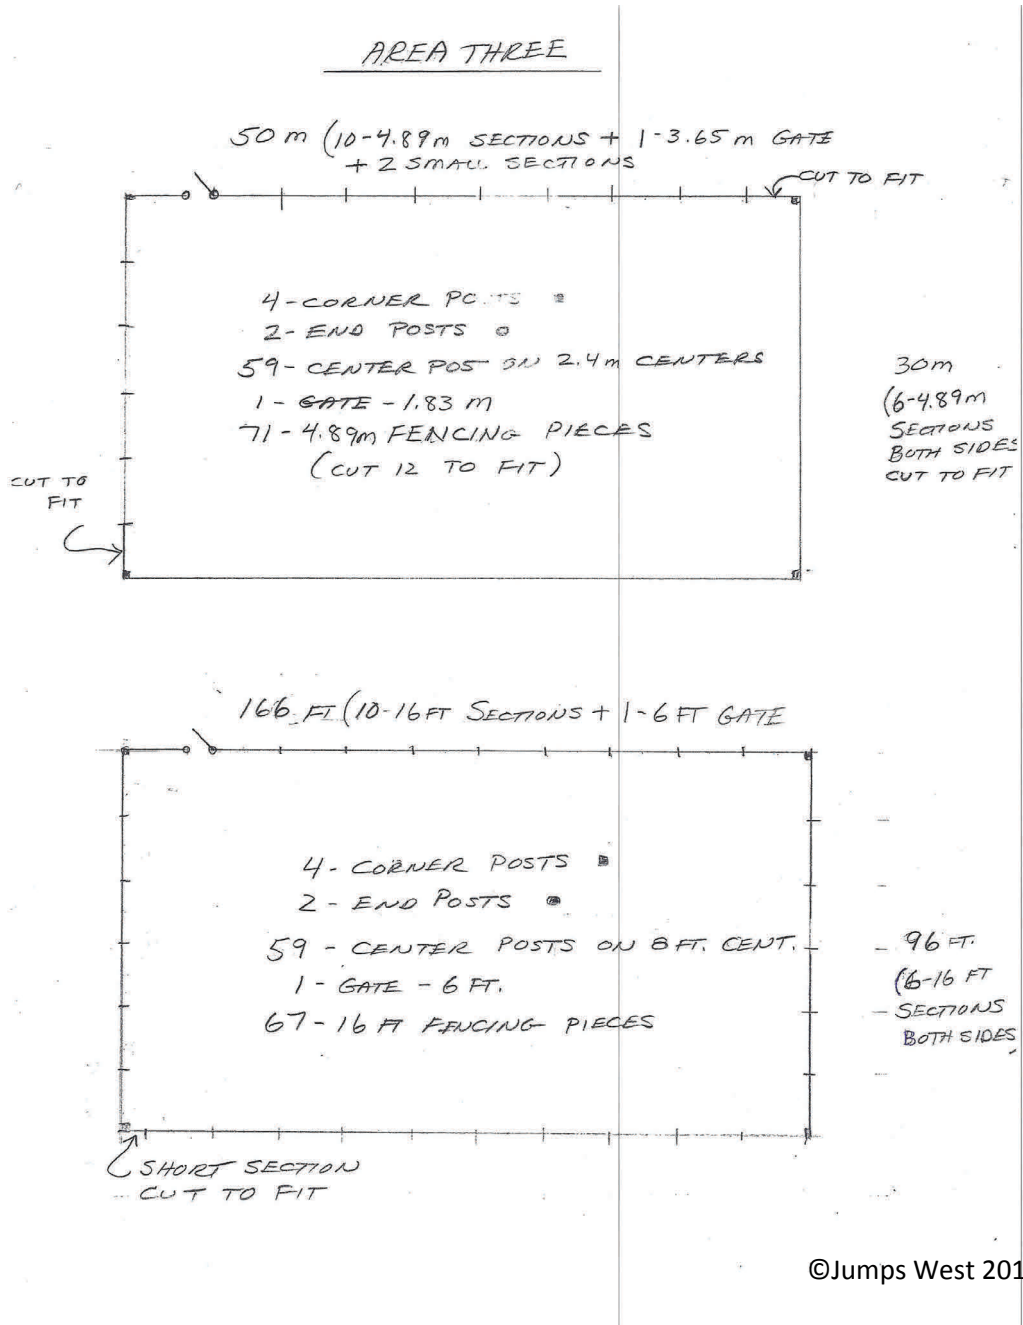 AREA THREE
50 m (10-4.89m SECTIONS + 1-3.65 m GATE
+ 2 SMALL SECTIONS
CUT TO FIT
4-CORNER POSTS
2- END POSTS
59- CENTER POS ON 2.4m CENTERS
1 - GATE - 1.83 m
71- 4.89m FENCING PIECES
(CUT 12 TO FIT)
30m
(6-4.89m
SECTIONS
BOTH SIDES
CUT TO FIT
CUT TO
FIT
166 FT (10-16FT SECTIONS + 1-6 FT GATE
4- CORNER POSTS
2 - END POSTS
59 - CENTER POSTS ON 8 FT. CENT.
1 - GATE - 6 FT.
67-16 FT FENCING PIECES
96 FT.
(6-16 FT
SECTIONS
BOTH SIDES
SHORT SECTION
CUT TO FIT
©Jumps West 201